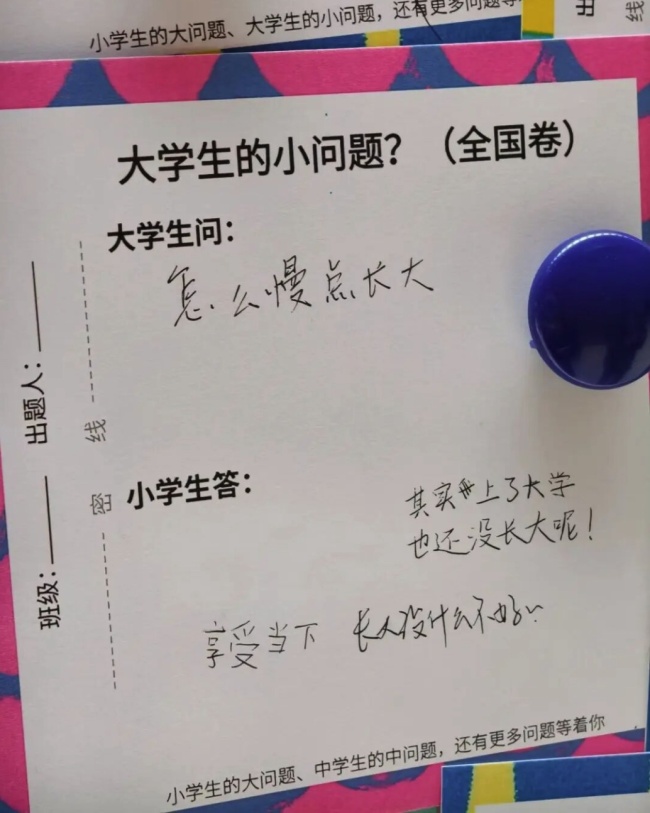 小学生的大问题、大学生的小问题，还有更多问题等
出
线
大学生的小问题？（全国卷）
大学生问：
怎么慢点长大
出题人：
线
密
班级：
小学生答：
其实上了大学
也还没长大呢！
享受当下 长大没什么不好
小学生的大问题、中学生的中问题，还有更多问题等着你